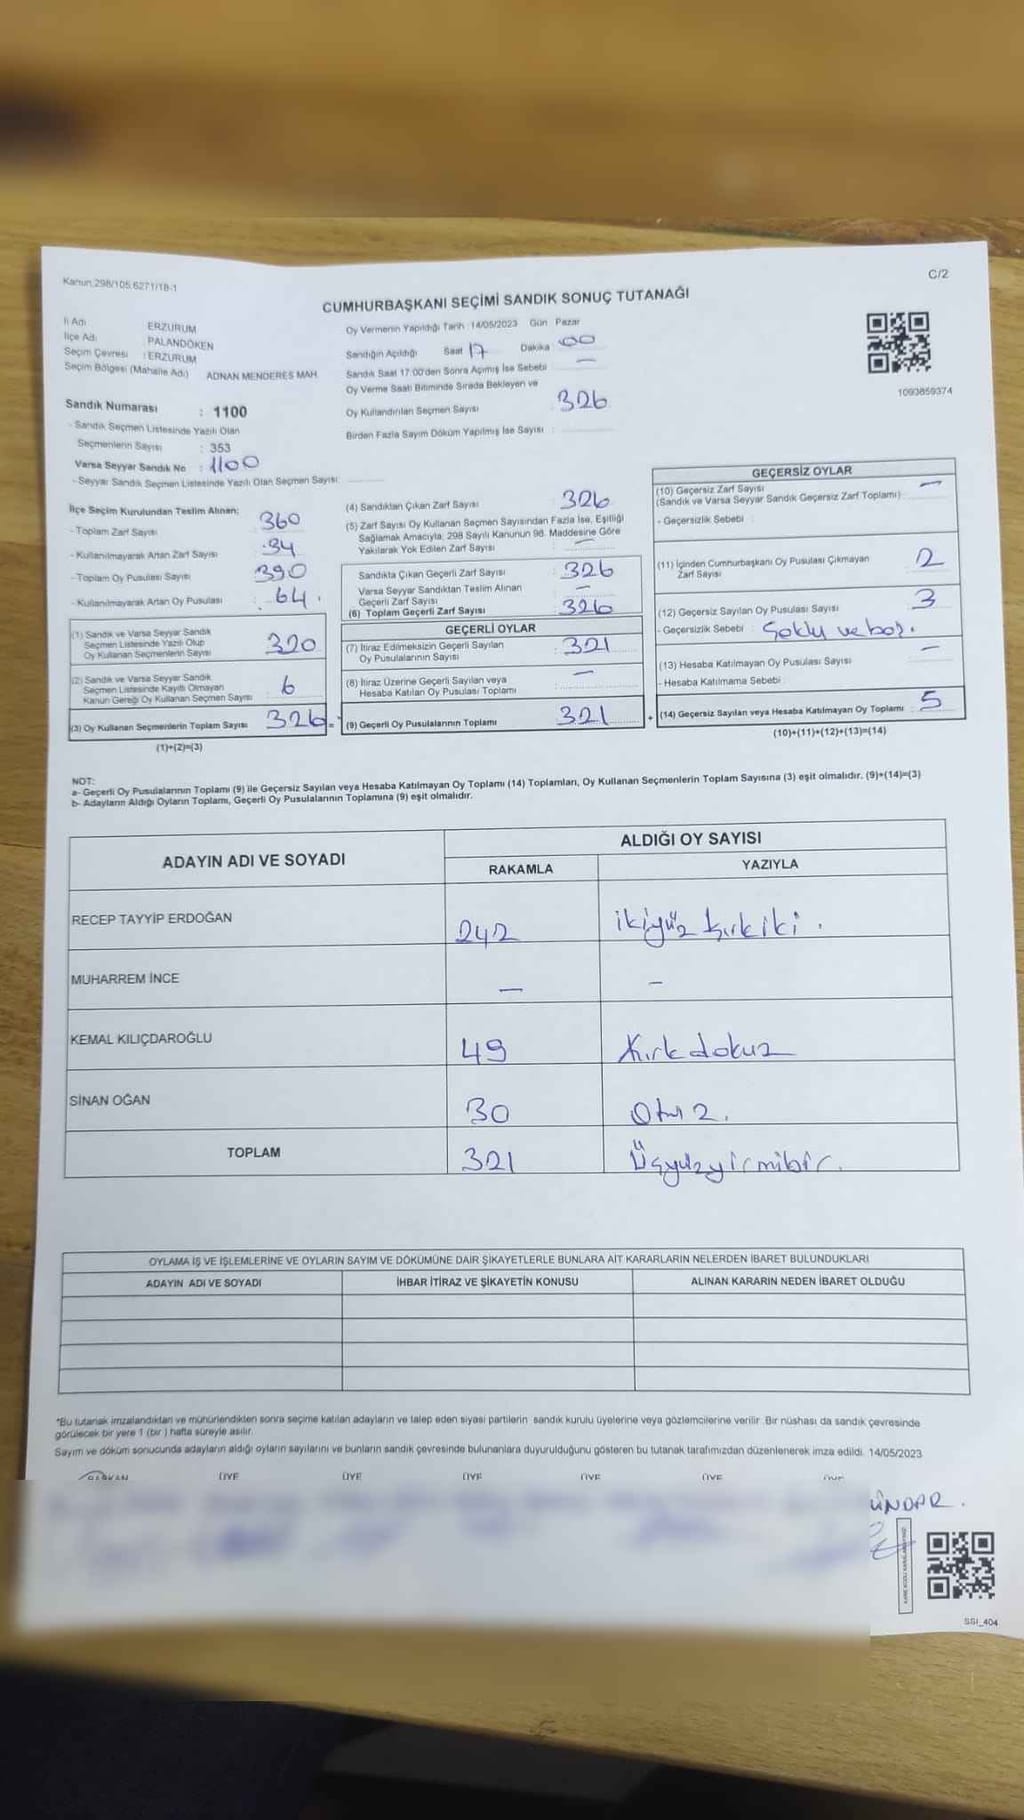 Kanun 298/105,6271/18-1
C/2
CUMHURBAŞKANI SEÇİMİ SANDIK SONUÇ TUTANAĞI
İl Adı ERZURUM
İlçe Adı PALANDÖKEN
Seçim Çevresi : ERZURUM
Seçim Bölgesi (Mahalle Adı) ADNAN MENDERES MAH.
Sandık Numarası : 1100
- Sandık Seçmen Listesinde Yazılı Olan
Seçmenlerin Sayısı : 353
Varsa Seyyar Sandık No : 1100
- Seyyar Sandık Seçmen Listesinde Yazılı Olan Seçmen Sayısı:
Oy Vermenin Yapıldığı Tarih 14/05/2023 Gün Pazar
Sandığın Açıldığı Saat 17 Dakika 00
Sandık Saat 17:00'den Sonra Açımış İse Sebebi —
Oy Verme Saati Bitiminde Sırada Bekleyen ve
Oy Kullandırılan Seçmen Sayısı 326
Birden Fazla Sayım Döküm Yapılmış İse Sayısı :
1093859374
İlçe Seçim Kurulundan Teslim Alınan:
- Toplam Zarf Sayısı 360
- Kullanılmayarak Artan Zarf Sayısı 34
- Toplam Oy Pusulası Sayısı 390
- Kullanılmayarak Artan Oy Pusulası : 64
(1) Sandık ve Varsa Seyyar Sandık
Seçmen Listesinde Yazılı Olup
Oy Kullanan Seçmenlerin Sayısı 320
(2) Sandık ve Varsa Seyyar Sandık
Seçmen Listesinde Kayıtlı Olmayan
Kanun Gereği Oy Kullanan Seçmen Sayısı 6
(3) Oy Kullanan Seçmenlerin Toplam Sayısı 326 =
(1)+(2)=(3)
(4) Sandıktan Çıkan Zarf Sayısı 326
(5) Zarf Sayısı Oy Kullanan Seçmen Sayısından Fazla İse, Eşitliği
Sağlamak Amacıyla; 298 Sayılı Kanunun 98. Maddesine Göre
Yakılarak Yok Edilen Zarf Sayısı —
Sandıkta Çıkan Geçerli Zarf Sayısı : 326
Varsa Seyyar Sandıktan Teslim Alınan
Geçerli Zarf Sayısı —
(6) Toplam Geçerli Zarf Sayısı 326
GEÇERLİ OYLAR
(7) İtiraz Edilmeksizin Geçerli Sayılan
Oy Pusulalarının Sayısı : 321
(8) İtiraz Üzerine Geçerli Sayılan veya
Hesaba Katılan Oy Pusulası Toplamı —
(9) Geçerli Oy Pusulalarının Toplamı 321 +
GEÇERSİZ OYLAR
(10) Geçersiz Zarf Sayısı
(Sandık ve Varsa Seyyar Sandık Geçersiz Zarf Toplamı) —
- Geçersizlik Sebebi
(11) İçinden Cumhurbaşkanı Oy Pusulası Çıkmayan
Zarf Sayısı 2
(12) Geçersiz Sayılan Oy Pusulası Sayısı 3
- Geçersizlik Sebebi : Çoklu ve boş.
(13) Hesaba Katılmayan Oy Pusulası Sayısı —
- Hesaba Katılmama Sebebi
(14) Geçersiz Sayılan veya Hesaba Katılmayan Oy Toplamı : 5
(10)+(11)+(12)+(13)=(14)
NOT:
a- Geçerli Oy Pusulalarının Toplamı (9) ile Geçersiz Sayılan veya Hesaba Katılmayan Oy Toplamı (14) Toplamları, Oy Kullanan Seçmenlerin Toplam Sayısına (3) eşit olmalıdır. (9)+(14)=(3)
b- Adayların Aldığı Oyların Toplamı, Geçerli Oy Pusulalarının Toplamına (9) eşit olmalıdır.
ADAYIN ADI VE SOYADI
ALDIĞI OY SAYISI
RAKAMLA YAZIYLA
RECEP TAYYİP ERDOĞAN 242 ikiyüz kırkiki.
MUHARREM İNCE — —
KEMAL KILIÇDAROĞLU 49 Kırkdokuz
SİNAN OĞAN 30 Otuz.
TOPLAM 321 Üçyüzyirmibir.
OYLAMA İŞ VE İŞLEMLERİNE VE OYLARIN SAYIM VE DÖKÜMÜNE DAİR ŞİKAYETLERLE BUNLARA AİT KARARLARIN NELERDEN İBARET BULUNDUKLARI
ADAYIN ADI VE SOYADI İHBAR İTİRAZ VE ŞİKAYETİN KONUSU ALINAN KARARIN NEDEN İBARET OLDUĞU
*Bu tutanak imzalandıktan ve mühürlendikten sonra seçime katılan adayların ve talep eden siyasi partilerin sandık kurulu üyelerine veya gözlemcilerine verilir. Bir nüshası da sandık çevresinde
görülecek bir yere 1 (bir) hafta süreyle asılır.
Sayım ve döküm sonucunda adayların aldığı oyların sayılarını ve bunların sandık çevresinde bulunanlara duyurulduğunu gösteren bu tutanak tarafımızdan düzenlenerek imza edildi. 14/05/2023
BAŞKAN ÜYE ÜYE ÜYE ÜYE ÜYE ÜYE
ÜNDAR.
SSI_404